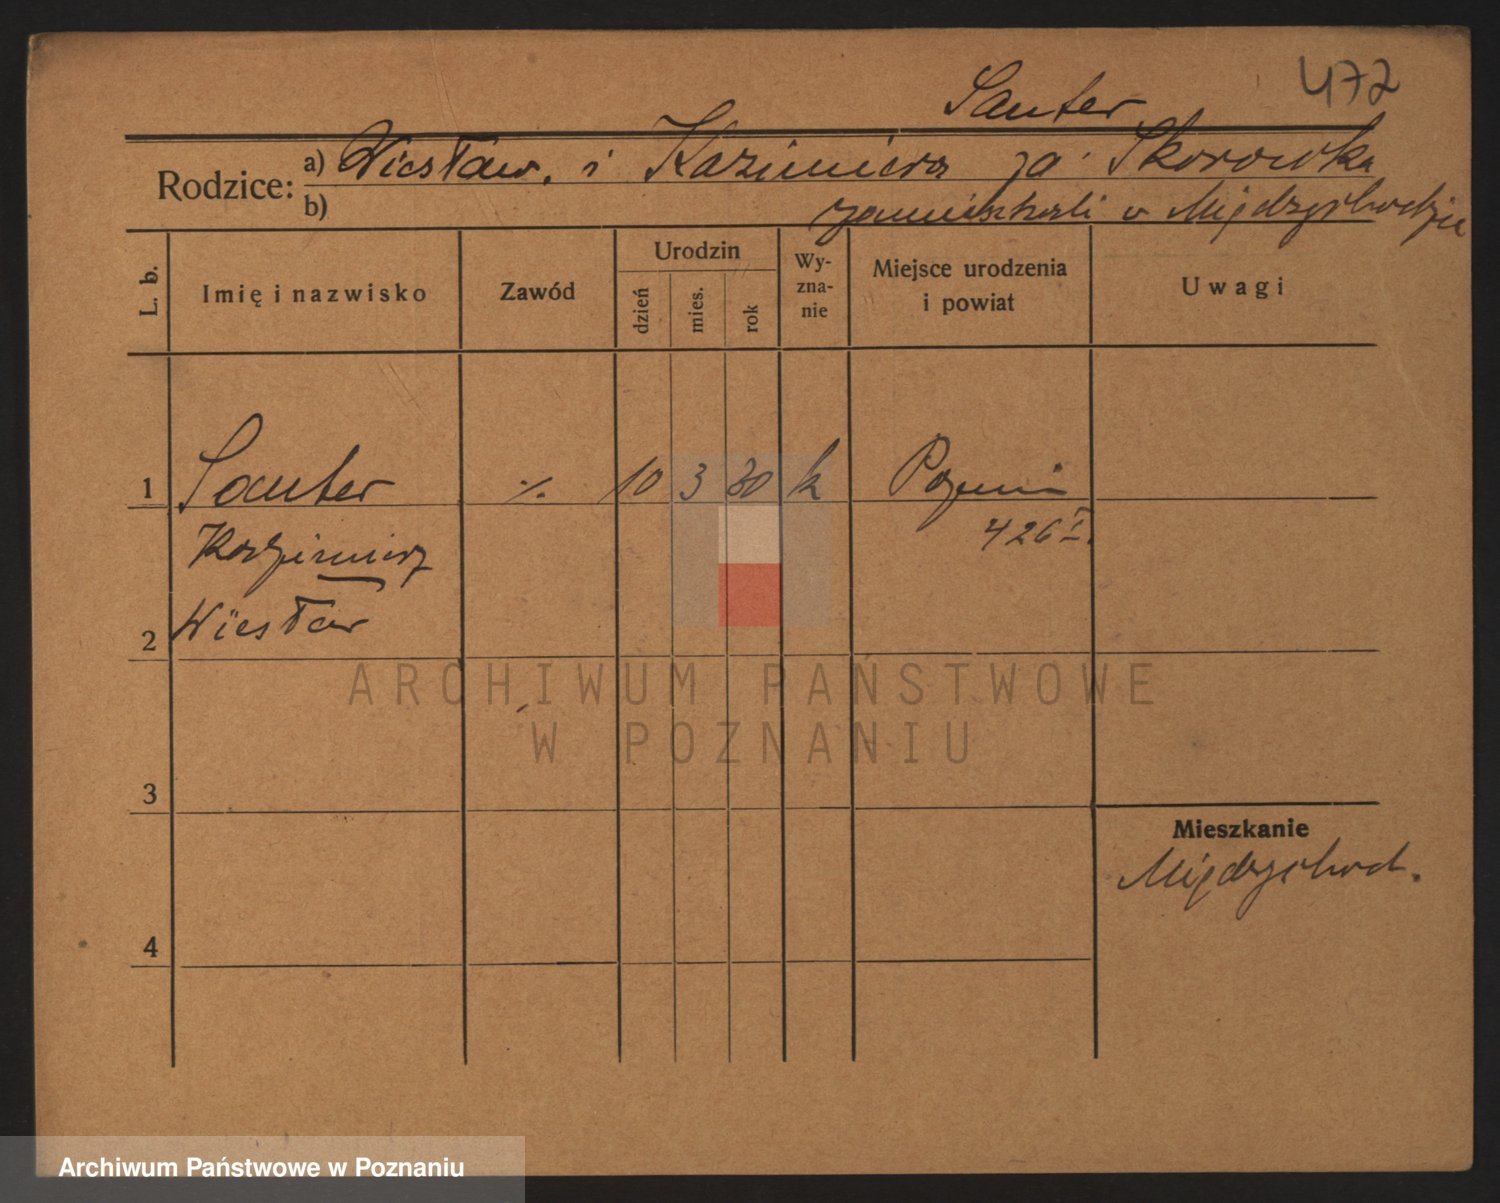 472
Sauter
Rodzice: a) Wiesław. i Kazimiera za Skorowska
b) zamieszkali w Międzychodzie
L. b. Imię i nazwisko Zawód Urodzin dzień mies. rok Wy-zna-nie Miejsce urodzenia i powiat Uwagi
1 Sauter ./. 10 3 30 k Poznań
Kazimierz 426 I.
2 Wiesław
ARCHIWUM PAŃSTWOWE
W POZNANIU
3
Mieszkanie
Międzychod.
4
Archiwum Państwowe w Poznaniu